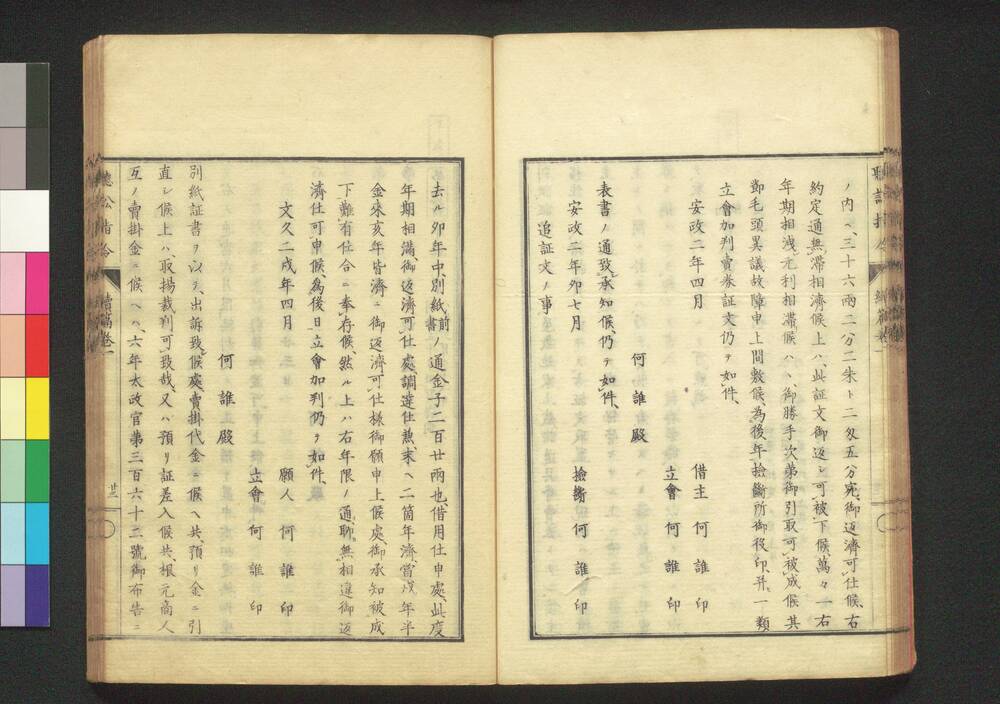 ノ内ヘ、三十六兩二分二朱ト二匁五分宛、御返濟可仕候、右
約定通無滯相濟候上ハ、此証文御返シ可被下候、萬々一右
年期相洩元利相滯候ハヽ、御勝手次第御引取可被成候、其
節毛頭異議故障申上間敷候、為後年撿斷所御役印幷一類
立會加判賣券証文仍テ如件、
安政二年四月
借主 何 誰 印
立會 何 誰 印
何 誰 殿
表書ノ通致承知候、仍テ如件、
安政二年卯七月
撿斷 何 誰 印
追証文ノ事
去ル卯年中、別紙前書ノ通金子二百廿兩也、借用仕申處、此度
年期相滿、御返濟可仕處、調達仕兼、末ヘ二箇年濟、當戌年半
金來亥年皆濟ニ御返濟可仕様御願申上候處、御承知被成
下、難有仕合ニ奉存候、然ル上ハ右年限ノ通、聊無相違御返
濟仕可申候、為後日立會加判仍テ如件、
文久二戌年四月
願人 何 誰 印
立會 何 誰 印
何 誰 殿
別紙証書ヲ以テ、出訴致候處、賣掛代金ニ候ヘ共、預リ金ニ引
直シ候上ハ、取揚裁判可致哉、又ハ預リ証差入候共、根元商人
互ノ賣掛金ニ候ヘハ、六年太政官第三百六十二號御布告ニ
聽訟指令
續篇卷一
廿二